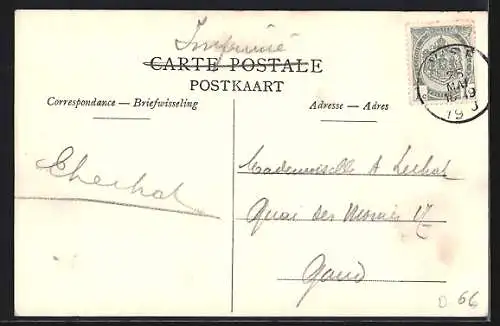 Imprimé
CARTE POSTALE
POSTKAART
Correspondance — Briefwisseling
Adresse — Adres
Mademoiselle A
Quai des Moines 17
Gand
D. 66